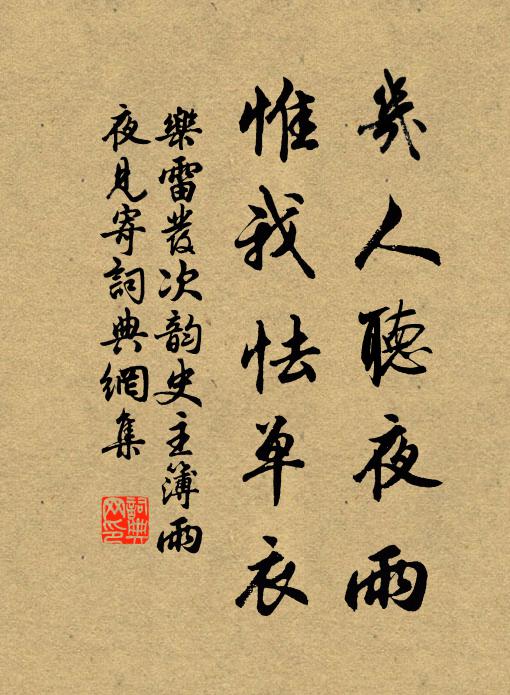 幾人聽夜雨
惟我怯单衣
樂雷發次韵史主簿雨
夜見寄詞典網集
詞典网印